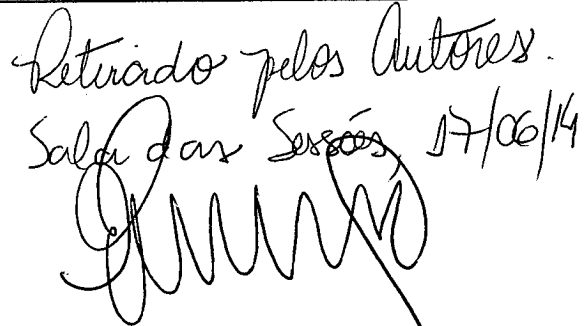 Retirado pelos Autores.
Sala das Sessões, 17/06/14